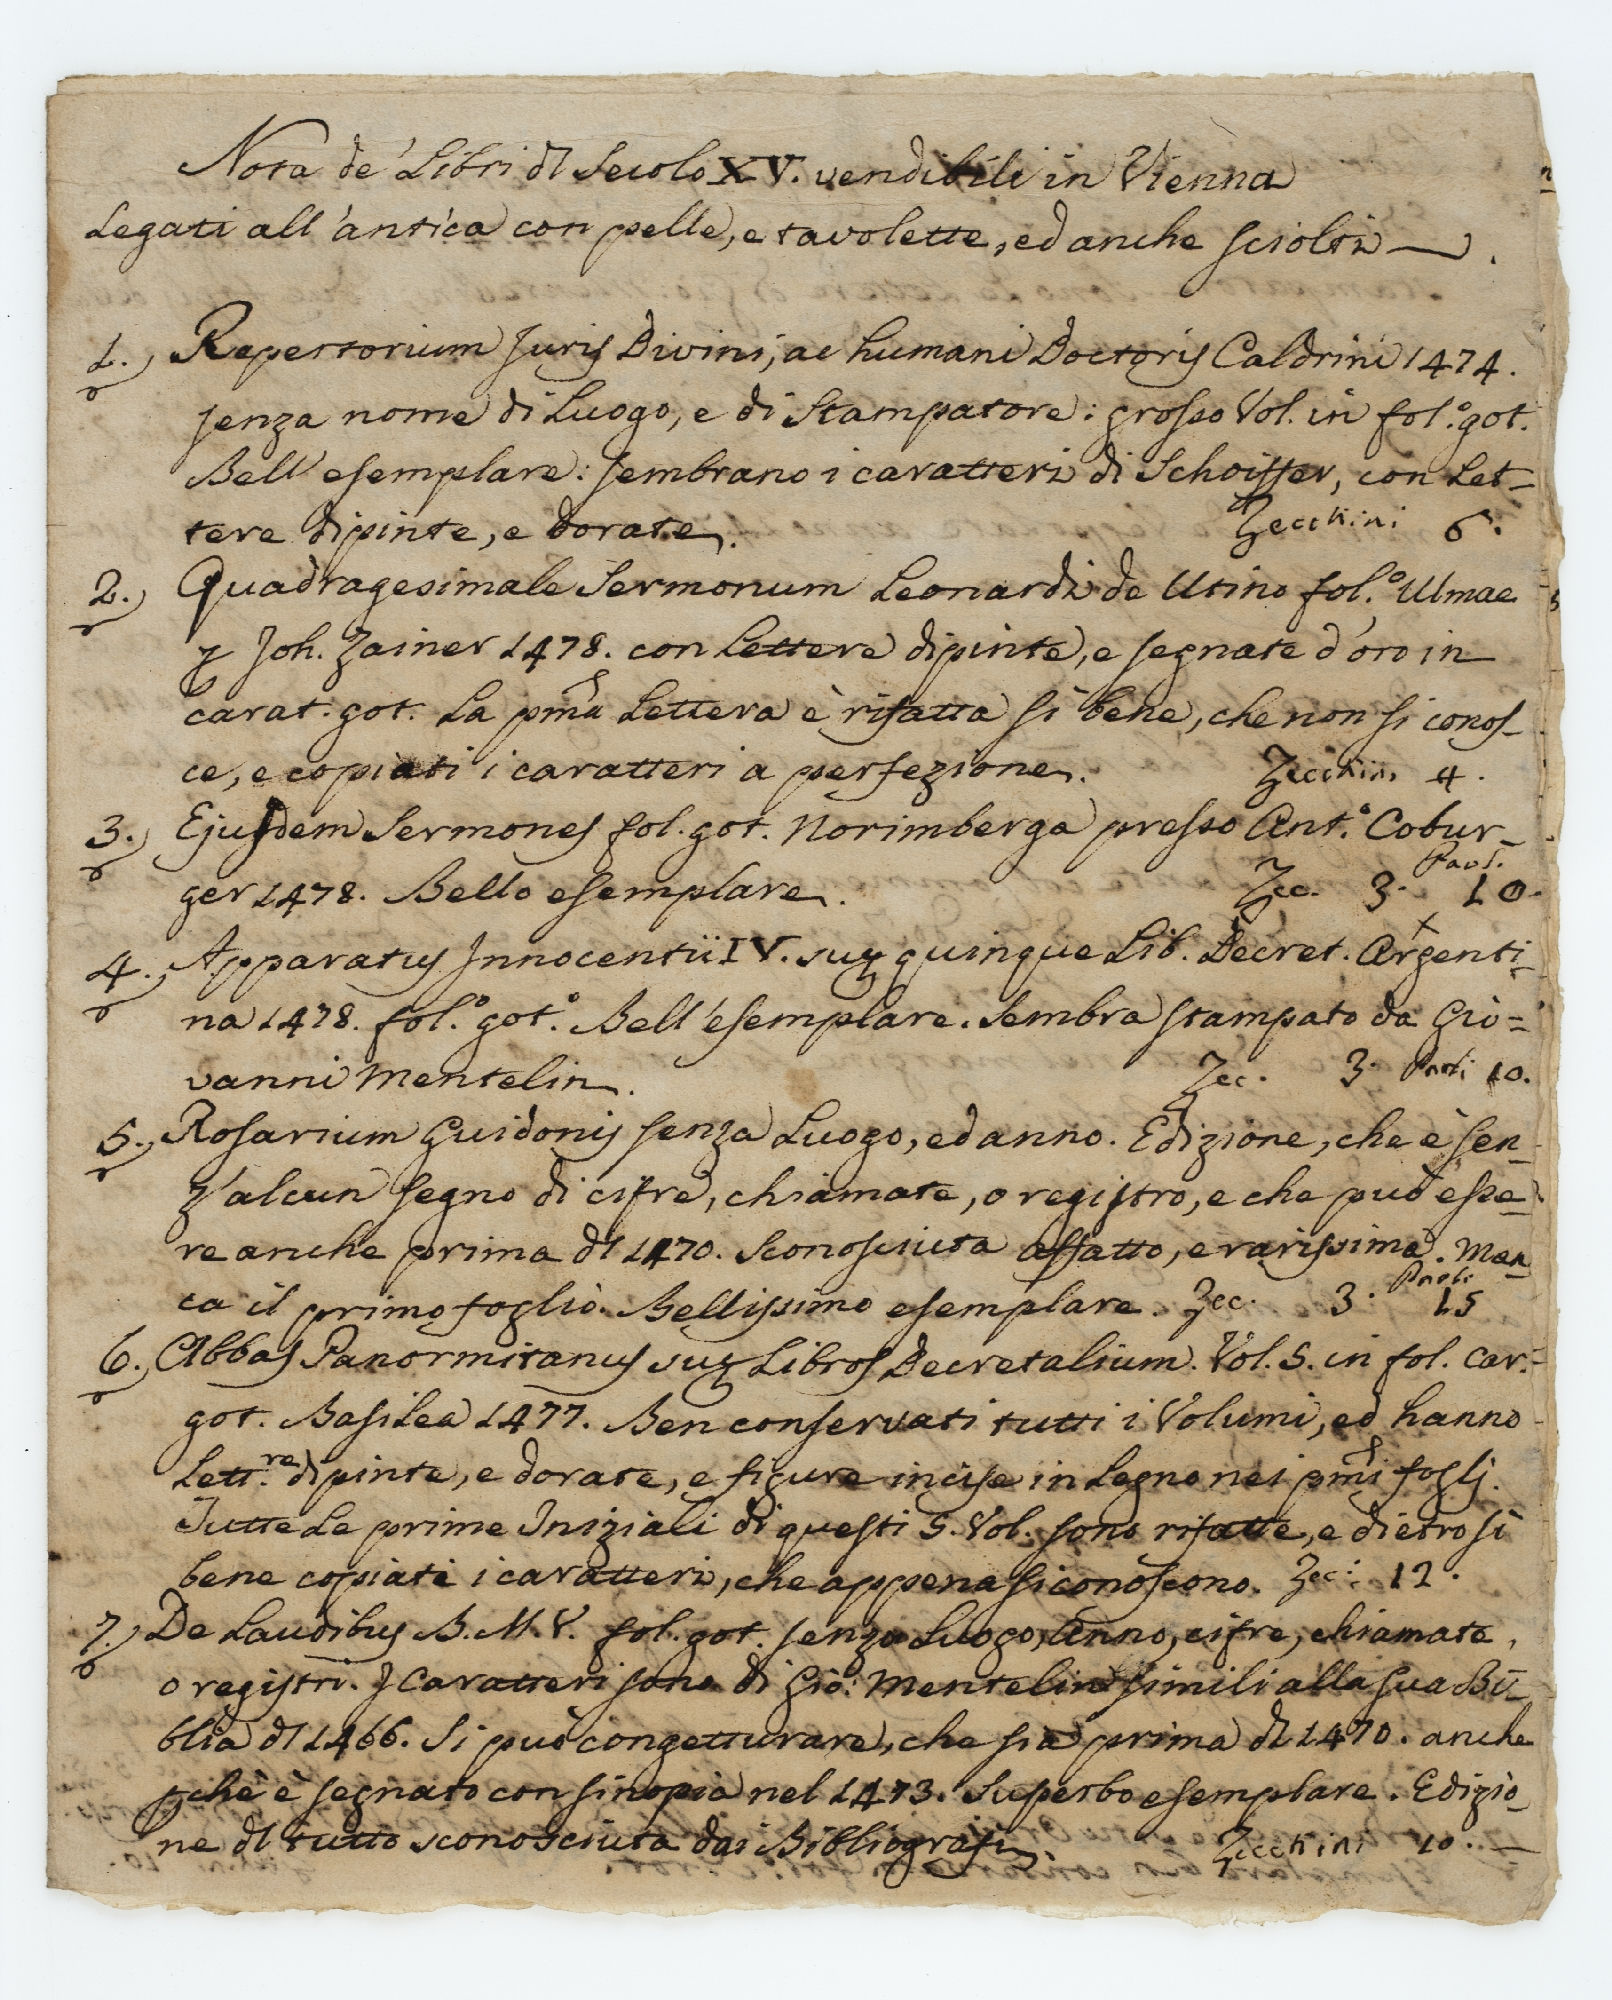 Nota de' Libri dl Secolo XV. vendibili in Vienna
Legati all'antica con pelle, e tavolette, ed anche sciolti —.
1. Repertorium Juris Divini, ac humani Doctoris Caldrini 1474.
senza nome di Luogo, e di Stampatore: grosso Vol. in fol.º got.
Bell'esemplare: sembrano i caratteri di Schoiffer, con Let-
tere dipinte, e dorate. Zecchini 6.
2. Quadragesimale Sermonum Leonardi de Utino fol.º Ulmae
p Joh. Zainer 1478. con Lettere dipinte, e segnate d'oro in
carat. got. La pma Lettera è rifatta si bene, che non si conos-
ce, e copiati i caratteri a perfezione. Zecchini 4.
3. Ejusdem Sermones fol. got. Norimberga presso Ant.º Cobur-
ger 1478. Bello esemplare. Zec. 3. Paol. 10.
4. Apparatus Innocentii IV. sup quinque Lib. Decret. Argenti-
na 1478. fol.º got.º Bell'esemplare. Sembra stampato da Gio=
vanni Mentelin. Zec. 3. Paoli 10.
5. Rosarium Guidonis senza Luogo, ed anno. Edizione, che è sen-
z'alcun segno di cifre, chiamate, o registro, e che può esse-
re anche prima dl 1470. Sconosciuta affatto, e rarissima. Man-
ca il primo foglio. Bellissimo esemplare. Zec. 3. Paoli 15
6. Abbas Panormitanus sup Libros Decretalium. Vol. 5. in fol. car.
got. Basilea 1477. Ben conservati tutti i Volumi, ed hanno
Lett.re dipinte, e dorate, e figure incise in Legno nei pmi foglj.
Tutte Le prime Iniziali di questi 5. Vol. sono rifatte, e dietro si
bene copiati i caratteri, che appena si conoscono. Zec: 12.
7. De Laudibus B. M. V. fol. got. senza Luogo, Anno, cifre, chiamate,
o registri. I Caratteri sono di Gio: Mentelin simili alla sua Bi-
blia dl 1466. Si può congetturare, che sia prima dl 1470. anche
pchè è segnato con sinopia nel 1473. Superbo esemplare. Edizio-
ne dl tutto sconosciuta dai Bibliografi. Zecchini 10. —